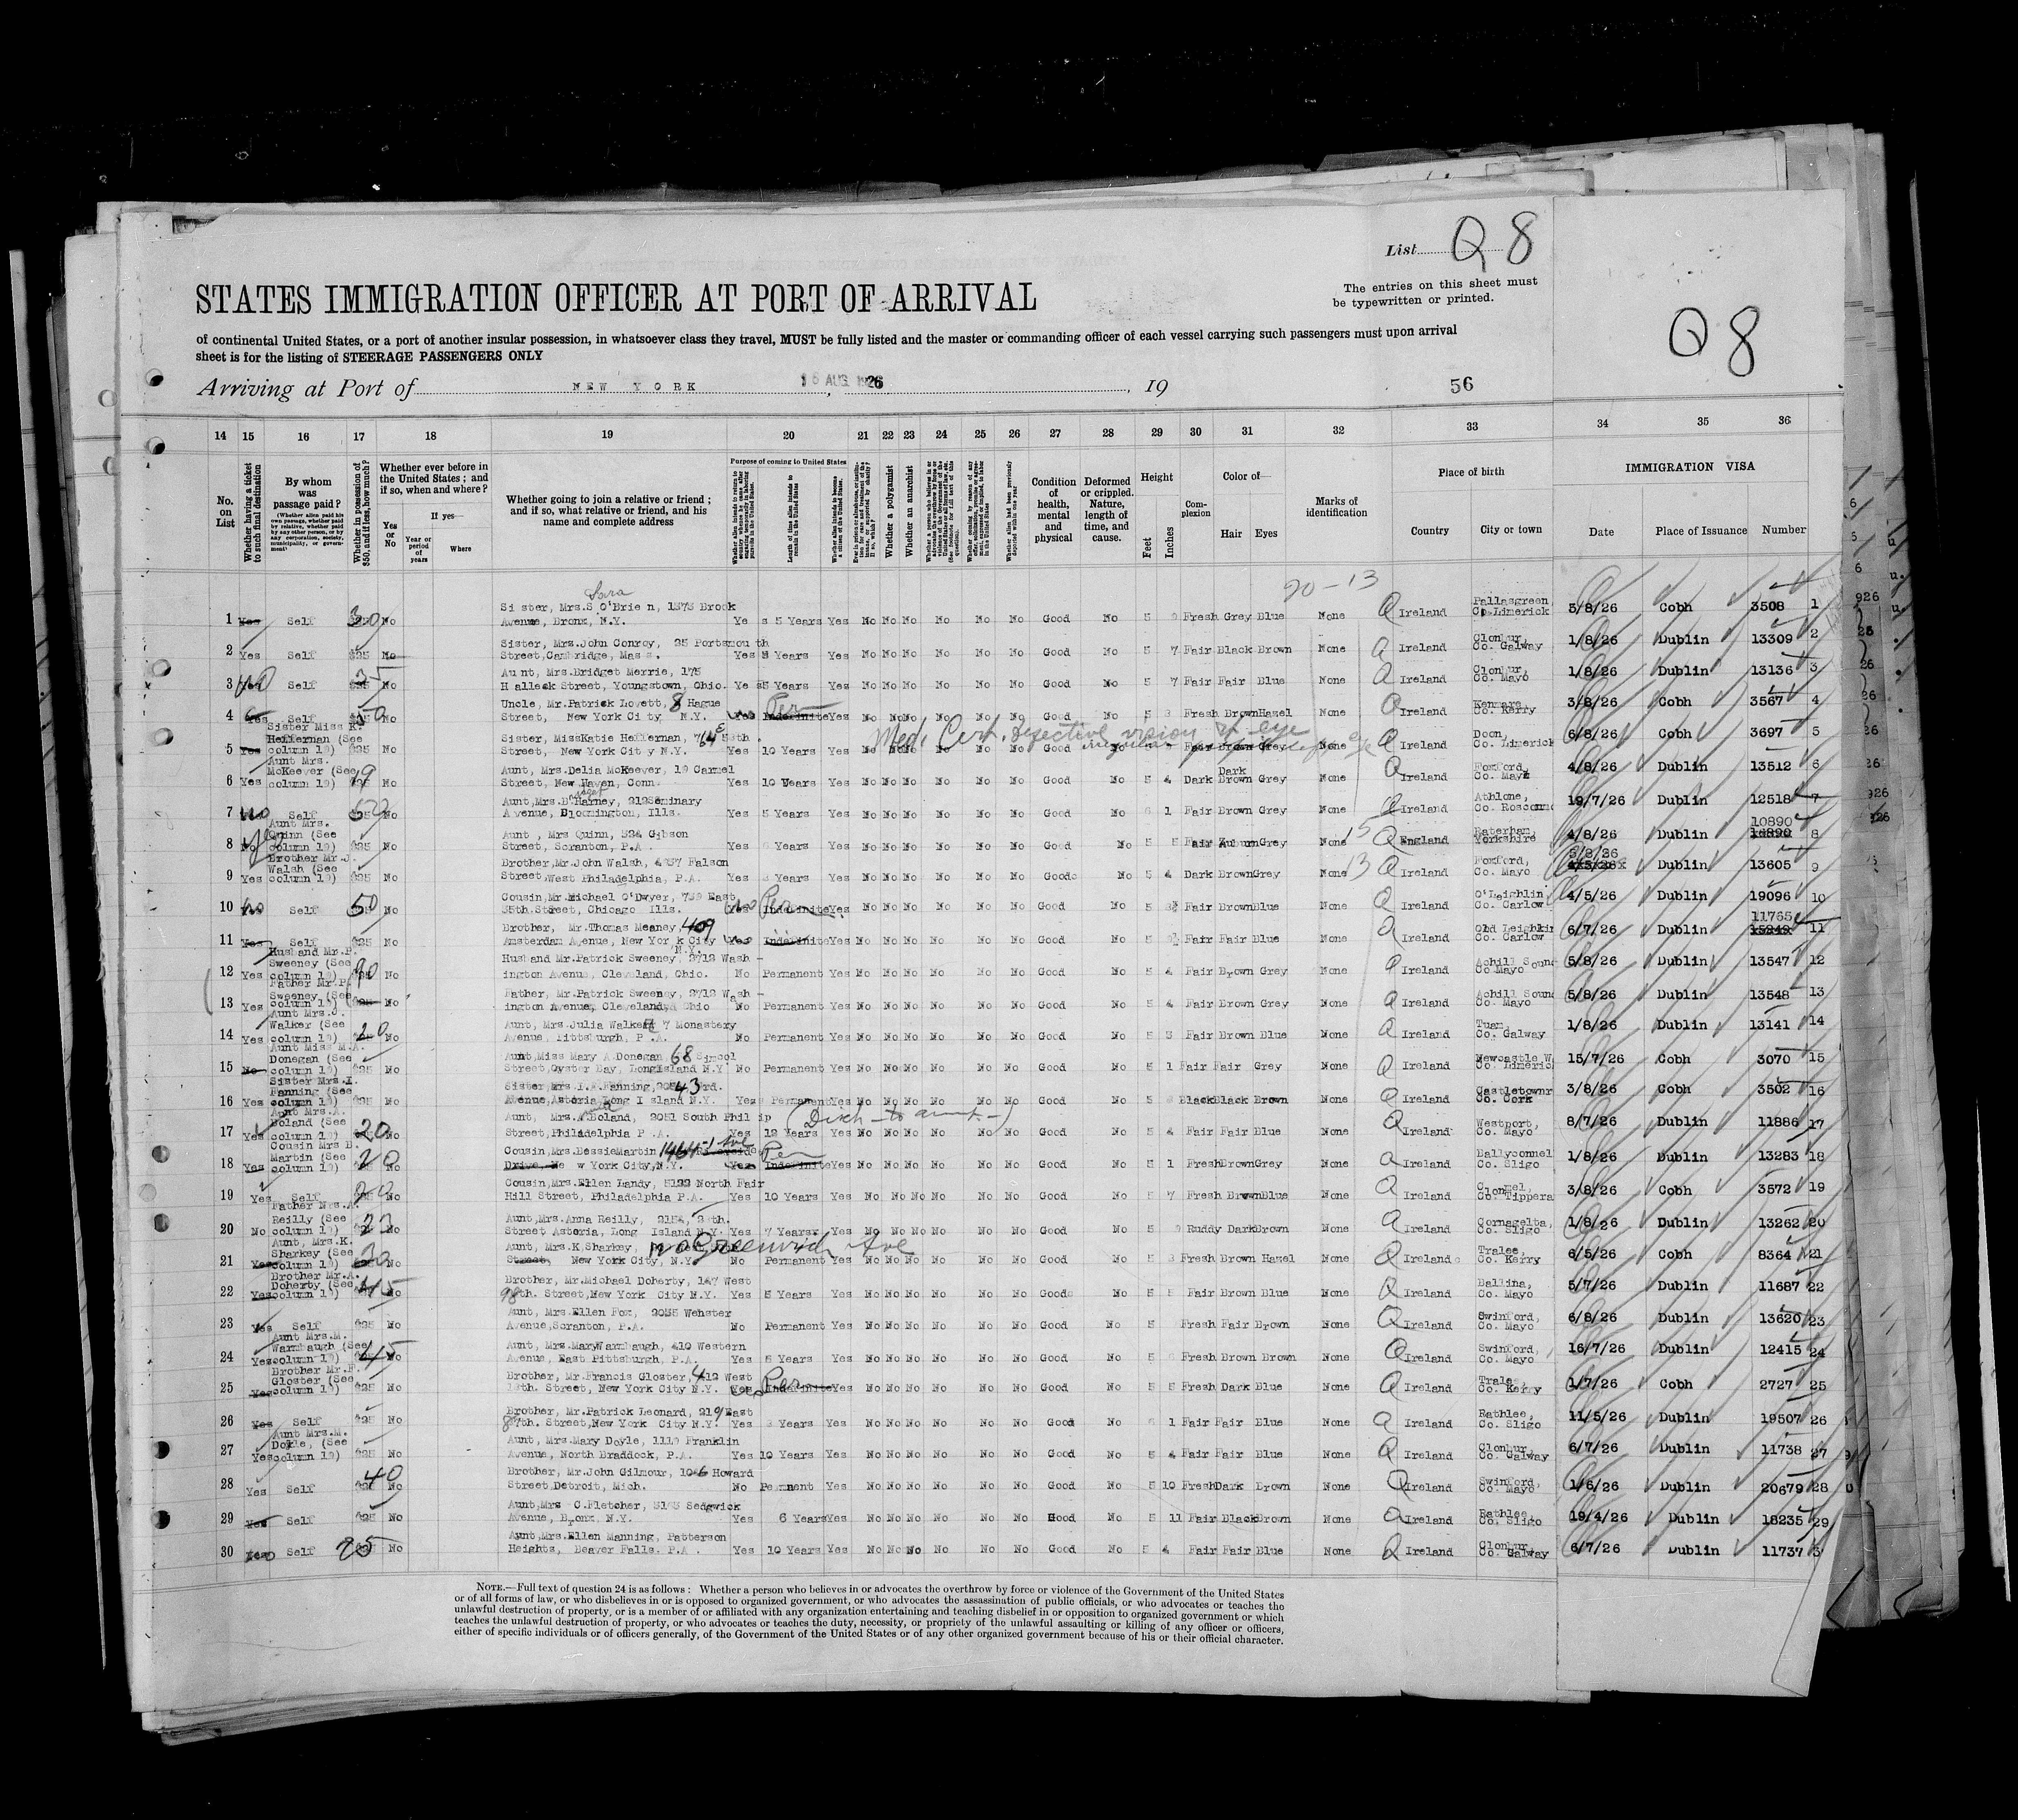 List Q 8
The entries on this sheet must
be typewritten or printed.
Q 8
STATES IMMIGRATION OFFICER AT PORT OF ARRIVAL
of continental United States, or a port of another insular possession, in whatsoever class they travel, MUST be fully listed and the master or commanding officer of each vessel carrying such passengers must upon arrival
sheet is for the listing of STEERAGE PASSENGERS ONLY
Arriving at Port of NEW YORK, AUG 1926, 19 56
14 15 16 17 18 19 20 21 22 23 24 25 26 27 28 29 30 31 32 33 34 35 36
No. on List
Whether having a ticket to such final destination
By whom was passage paid?
(Whether alien paid his own passage, whether paid by relative, whether paid by any other person, or by any corporation, society, municipality, or government)
Whether in possession of $50, and if less, how much?
Whether ever before in the United States; and if so, when and where?
Yes or No
If yes—
Year or period of years
Where
Whether going to join a relative or friend; and if so, what relative or friend, and his name and complete address
Purpose of coming to United States
Length of time alien intends to remain in the United States
Whether alien intends to become a citizen of the United States.
Whether a polygamist
Whether an anarchist
Condition of health, mental and physical
Deformed or crippled. Nature, length of time, and cause.
Height
Feet
Inches
Complexion
Color of—
Hair
Eyes
Marks of identification
Place of birth
Country
City or town
IMMIGRATION VISA
Date
Place of Issuance
Number
Sara
20-13
1 Yes Self 30 No Sister, Mrs.S O'Brien, 1373 Brook Avenue, Bronx, N.Y. Yes 5 Years Yes No No No No No No Good No 5 Fresh Grey Blue None Q Ireland Pallasgreen, Co.Limerick 3/8/26 Cobh 3508 1
2 Yes Self $25 No Sister, Mrs.John Conroy, 25 Portsmouth Street,Cambridge, Mass. Yes 5 Years Yes No No No No No No Good No 5 7 Fair Black Brown None Q Ireland Clonbur, Co. Galway 1/8/26 Dublin 13309 2
3 Self No Aunt, Mrs.Bridget Merrie, 175 Halleck Street, Youngstown, Ohio. Yes 5 Years Yes No No No No No No Good No 5 7 Fair Fair Blue None Q Ireland Clonbur, Co. Mayo 1/8/26 Dublin 13136 3
4 Yes Self 50 No Uncle, Mr.Patrick Lovett, 8 Hague Street, New York City N.Y. Yes Per Indefinite Yes No No No No No No Good No 5 3 Fresh Brown Hazel None Q Ireland Kenmare Co. Kerry 3/8/26 Cobh 3567 4
Med. Cert. Defective vision rt eye
5 Yes Sister Miss K. Heffernan (See column 19) $25 No Sister, MissKatie Heffernan, Street, New York City N.Y. Yes 10 Years Yes No No No No No No Good Fair Brown Grey None Q Ireland Doon, Co. Limerick 6/8/26 Cobh 3697 5
6 Yes Aunt Mrs. McKeever (See column 19) No Aunt, Mrs.Delia McKeever, 19 Carmel Street, New Haven, Conn. Yes 10 Years Yes No No No No No No Good No 5 4 Dark Dark Brown Grey None Q Ireland Foxford, Co. Mayo 4/8/26 Dublin 13512 6
7 No Self No Aunt,Mrs.B Harney, 212Seminary Avenue, Bloomington, Ill. Yes 5 Years Yes No No No No No No Good No 6 1 Fair Brown Grey None Q Ireland Athlone, Co. Roscommo 19/7/26 Dublin 12518 7
8 Aunt Mrs. Quinn (See column 19) $25 No Aunt, Mrs Quinn, 324 Gibson Street, Scranton, P.A. Yes Years Yes No No No No No No Good No 5 5 Fair Auburn Grey None 15 Q England Yorkshire 4/8/26 Dublin 10890 8
9 Yes Brother Mr J. Walsh (See column 19) $25 No Brother,Mr.John Walsh, 4237 Falson Street,West Philadelphia, P.A. Yes Years Yes No No No No No No Good No 5 4 Dark Brown Grey None 13 Q Ireland Foxford, Co. Mayo 3/8/26 Dublin 13605 9
10 No Self 50 No Cousin,Mr.Michael O'Dwyer, 739 East 55th.Street, Chicago Ills. No Per Indefinite Yes No No No No No No Good No 5 Fair Brown Blue None Q Ireland O'Leighlin Co. Carlow 4/5/26 Dublin 19096 10
11 Yes Self $25 No Brother, Mr.Thomas Meaney, 409 Amsterdam Avenue, New York City N.Y. Yes Indefinite Yes No No No No No No Good No 5 Fair Fair Blue None Q Ireland Old Leighlin Co. Carlow 6/7/26 Dublin 11765 11
12 Yes Husband Mr.P. Sweeney (See column 19) No Husband Mr.Patrick Sweeney, 2712 Washington Avenue, Cleveland, Ohio. No Permanent Yes No No No No No No Good No 5 4 Fair Brown Grey None Q Ireland Achill Soun Co Mayo 5/8/26 Dublin 13547 12
13 Yes Father Mr.P. Sweeney (See column 19) $25 No Father, Mr.Patrick Sweeney, 2712 Washington Avenue, Cleveland, Ohio No Permanent Yes No No No No No No Good No 5 4 Fair Brown Grey None Q Ireland Achill Soun Co. Mayo 5/8/26 Dublin 13548 13
14 Yes Aunt Mrs.J. Walker (See column 19) 20 No Aunt, Mrs.Julia Walker 7 Monastery Avenue, Pittsburgh, P.A. No Permanent Yes No No No No No No Good No 5 3 Fair Brown Blue None Q Ireland Tuam, Co. Galway 1/8/26 Dublin 13141 14
15 No Aunt Miss M.A. Donegan (See column 19) $25 No Aunt,Miss Mary A Donegan, 68 Simcol Street,Oyster Bay, LongIsland N.Y No Permanent Yes No No No No No No Good No 5 1 Fair Fair Grey None Q Ireland Newcastle W Co. Limeric 15/7/26 Cobh 3070 15
16 Yes Sister Mrs.I. Fanning (See column 19) $25 No Sister,Mrs.I.F.Fanning, 43rd. Avenue,Astoria Long Island N.Y. Yes Permanent Yes No No No No No No Good No 5 Black Black Brown None Q Ireland Castletownr Co. Cork 3/8/26 Cobh 3502 16
17 Yes Aunt Mrs.A. Boland (See column 19) 20 No Aunt, Mrs.A Boland, 2051 South Philip Street,Philadelphia P.A. Yes 12 Years Yes No No No No No No Good No 5 4 Fair Fair Blue None Q Ireland Westport, Co. Mayo 8/7/26 Dublin 11886 17
(Disch - to aunt -)
18 Yes Cousin Mrs B. Martin (See column 19) 20 No Cousin,Mrs.BessieMartin, 1464-1 Ave Drive, New York City,N.Y. Yes Per Indefinite Yes No No No No No No Good No 5 1 Fresh Brown Grey None Q Ireland Ballyconnel Co. Sligo 1/8/26 Dublin 13283 18
19 Yes Self No Cousin,Mrs.Ellen Landy, 5122 North Fair Hill Street, Philadelphia P.A. Yes 10 Years Yes No No No No No No Good No 5 7 Fresh Brown Blue None Q Ireland Clonmel, Co. Tippera 3/8/26 Cobh 3572 19
20 No Father Mrs.A. Reilly (See column 19) No Aunt,Mrs.Anna Reilly, Street Astoria, Long Island N.Y. Yes 7 Years Yes No No No No No No Good No 5 9 Ruddy Dark Brown None Q Ireland Cornagelta, Co. Sligo 1/8/26 Dublin 13262 20
21 Yes Aunt, Mrs.K. Sharkey (See column 19) 30 No Aunt, Mrs.K,Sharkey, Greenwich Ave Street, New York City, N.Y. No Permanent Yes No No No No No No Good No 5 3 Fresh Brown Hazel None Q Ireland Tralee, Co. Kerry 6/5/26 Cobh 8364 21
22 Yes Brother Mr.A. Doherty (See column 19) 45 No Brother, Mr.Michael Doherty, 147 West 98th. Street,New York City N.Y. Yes 5 Years Yes No No No No No No Good No 5 5 Fair Brown Blue None Q Ireland Ballina, Co. Mayo 5/7/26 Dublin 11687 22
23 Yes Self $25 No Aunt, Mrs.Ellen Fox, 2035 Webster Avenue,Scranton, P.A. No Permanent Yes No No No No No No Good No 5 Fresh Fair Brown None Q Ireland Swinford, Co. Mayo 6/8/26 Dublin 13620 23
24 Yes Aunt Mrs.M. Warmbaugh (See column 19) 45 No Aunt, Mrs.MaryWarmbaugh, 410 Western Avenue, East Pittsburgh, P.A. Yes 5 Years Yes No No No No No No Good No 5 Fresh Brown Brown None Q Ireland Swinford, Co. Mayo 16/7/26 Dublin 12415 24
25 Yes Brother Mr.F. Gloster (See column 19) $25 No Brother, Mr.Francis Gloster, 412 West Street, New York City N.Y. Yes Per Indefinite Yes No No No No No No Good No 5 5 Fresh Dark Blue None Q Ireland Tralee, Co. Kerry 1/7/26 Cobh 2727 25
26 Yes Self $25 No Brother, Mr.Patrick Leonard, 219 East 87th. Street,New York City N.Y. Yes Years Yes No No No No No No Good No 6 1 Fair Fair Blue None Q Ireland Rathlee, Co. Sligo 11/5/26 Dublin 19507 26
27 Yes Aunt Mrs.M. Doyle, (See column 19) $25 No Aunt, Mrs.Mary Doyle, 1119 Franklin Avenue, North Braddock, P.A. Yes 10 Years Yes No No No No No No Good No 5 4 Fair Fair Blue None Q Ireland Clonbur, Co. Galway 6/7/26 Dublin 11738 27
28 Yes Self 40 No Brother, Mr.John Gilmour, 1046 Howard Street,Detroit, Mich. No Permanent Yes No No No No No No Good No 5 10 Fresh Dark Brown None Q Ireland Swinford, Co. Mayo 1/6/26 Dublin 20679 28
29 Yes Self $25 No Aunt,Mrs C.Fletcher, Sedgwick Avenue, Bronx, N.Y. Yes 6 Years Yes No No No No No No Good No 5 11 Fair Black Brown None Q Ireland Rathlee, Co. Sligo 19/4/26 Dublin 18235 29
30 Self 25 No Aunt,Mrs.Ellen Manning, Patterson Heights, Beaver Falls. P.A. Yes 10 Years Yes No No No No No No Good No 5 4 Fair Fair Blue None Q Ireland Clonbur, Co. Galway 6/7/26 Dublin 11737
NOTE.—Full text of question 24 is as follows: Whether a person who believes in or advocates the overthrow by force or violence of the Government of the United States
or of all forms of law, or who disbelieves in or is opposed to organized government, or who advocates the assassination of public officials, or who advocates or teaches the
unlawful destruction of property, or is a member of or affiliated with any organization entertaining and teaching disbelief in or opposition to organized government or which
teaches the unlawful destruction of property, or who advocates or teaches the duty, necessity, or propriety of the unlawful assaulting or killing of any officer or officers,
either of specific individuals or of officers generally, of the Government of the United States or of any other organized government because of his or their official character.